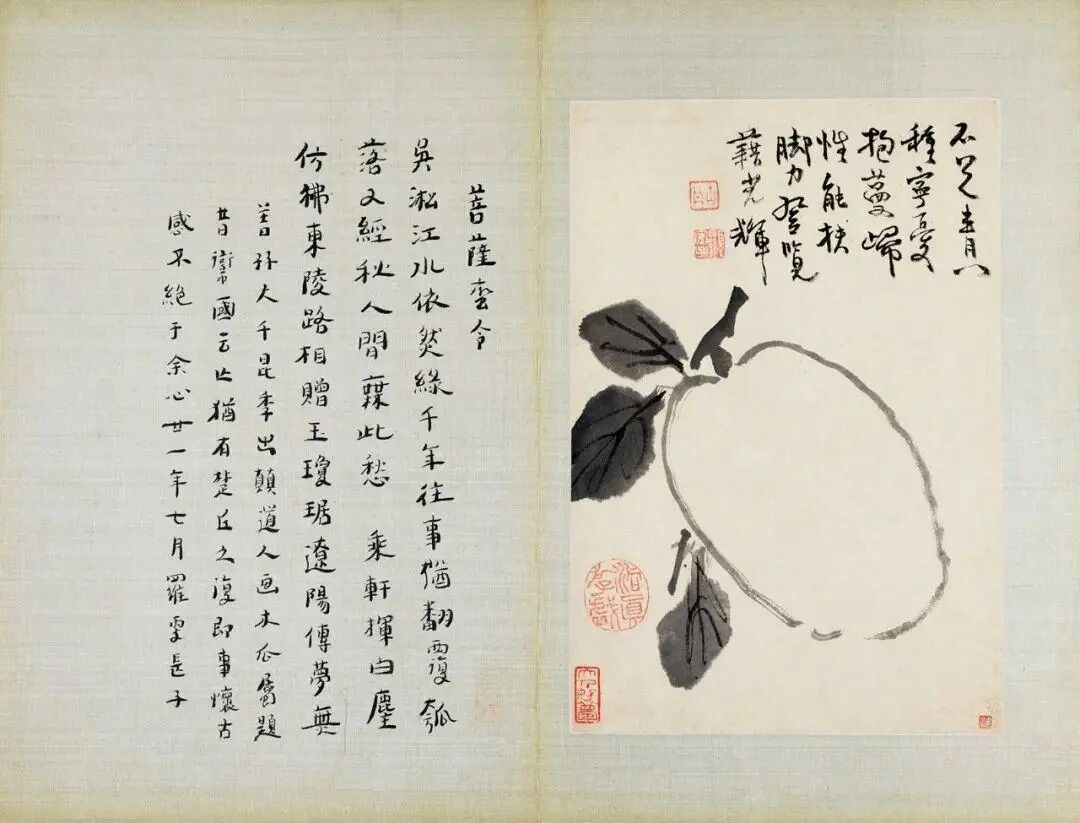 不是青門
種寧憂
抱蔓歸
性能扶
脚力登覽
藉光輝
菩薩蛮令
吳淞江水依然綠千年往事猶翻覆瓠
落又經秋人間無此愁 乘軒揮白麈
仿彿東陵路相贈玉瓊琚遼陽傳夢無
善孖大千昆季出顛道人画木瓜屬題
昔衛國云亡猶有楚丘之復即事懷古
感不絕于余心廿一年七月羅